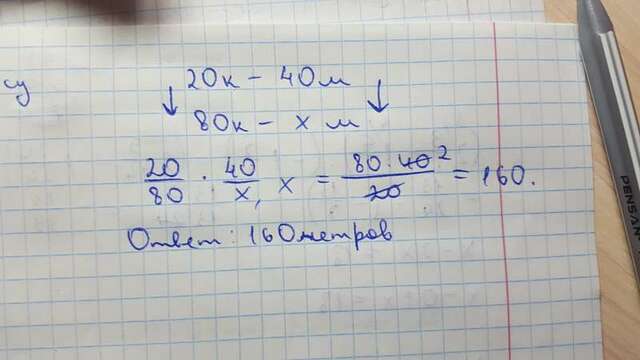 су
20к – 40м
80к – x м
20/80 · 40/x, x = 80·40 2/20 = 160.
Ответ: 160метров
PENSAN